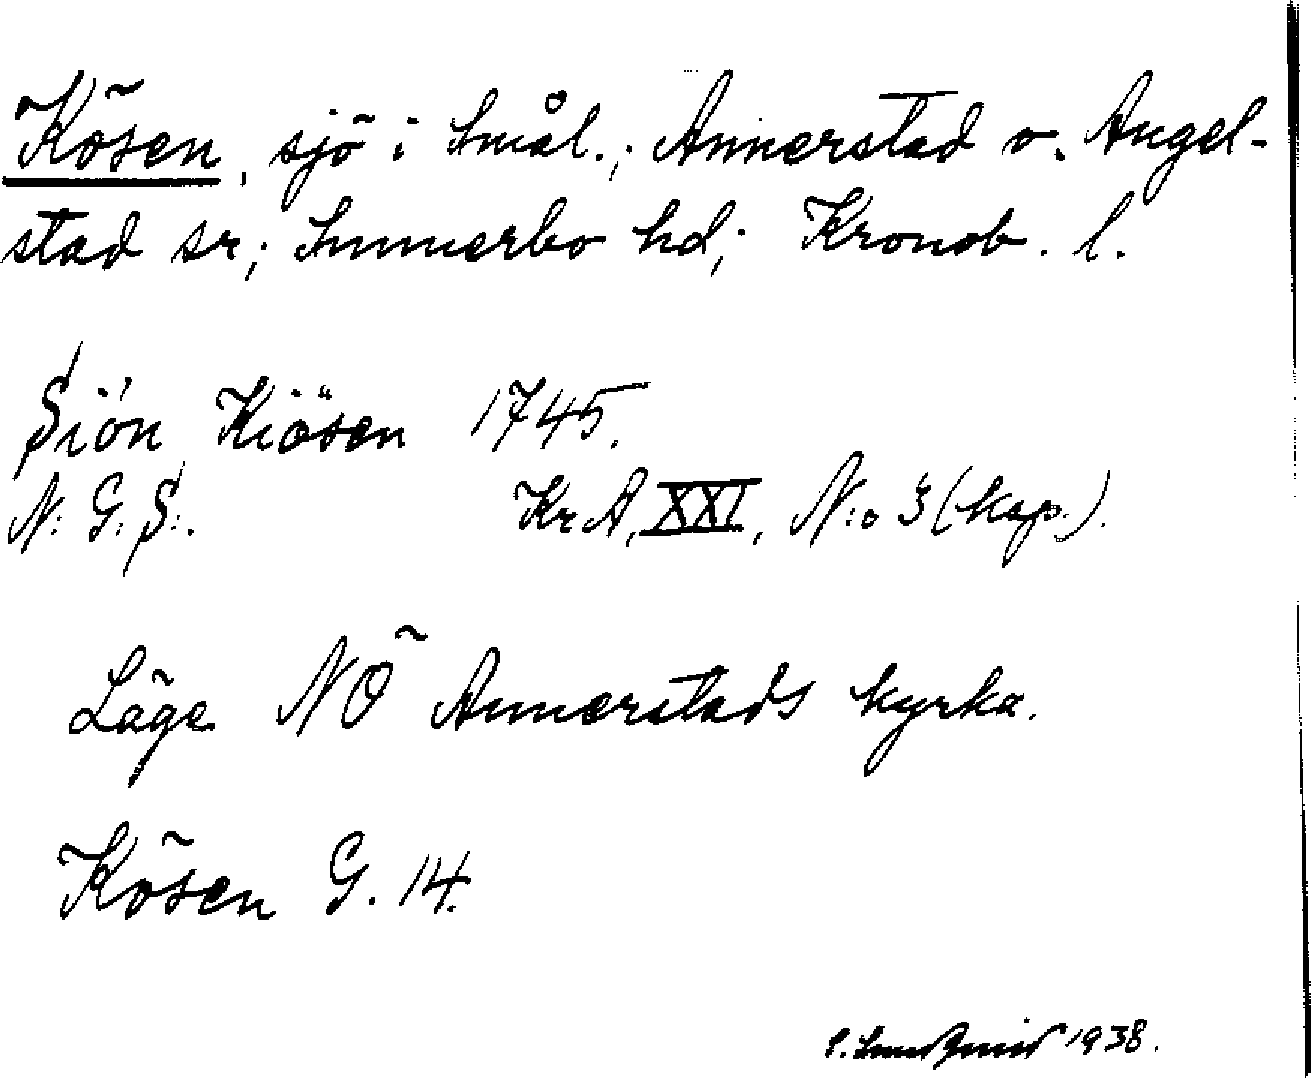 Kösen, sjö i Smål.; Annerstad o. Angel-
stad sr; Sunnerbo hd; Kronob. l.
Siön Kiösen 1745.
N: G: S:. KrA, XXI, N:o 3 (kap.).
Läge NÖ Annerstads kyrka.
Kösen G. 14.
1938.